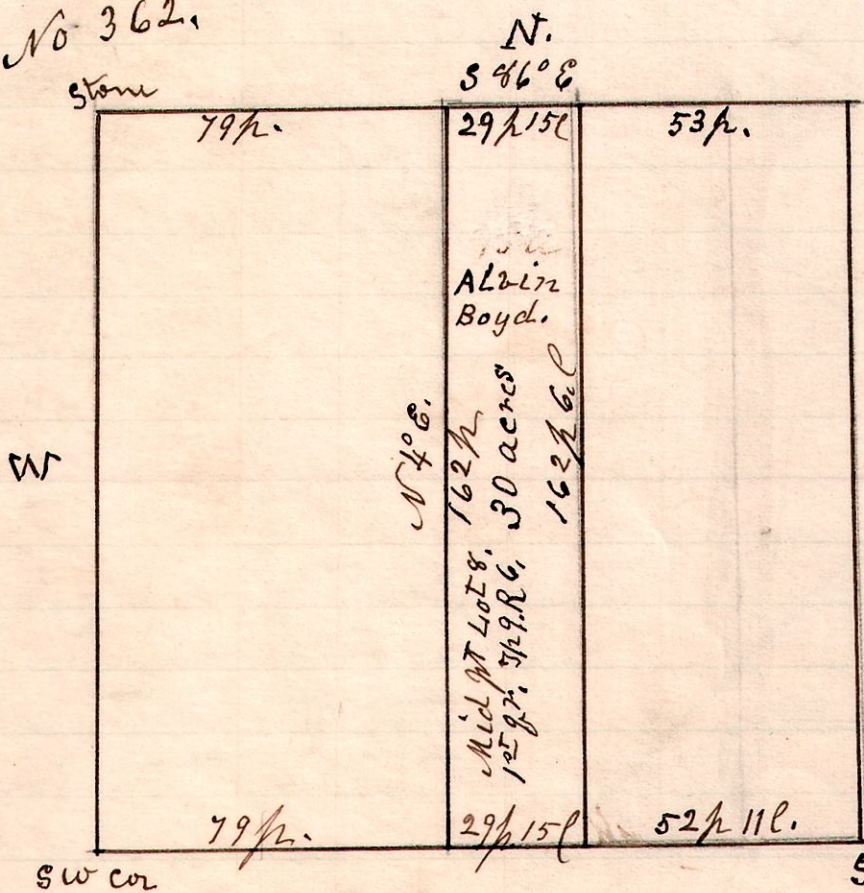 No 362.
N.
S 86° E
Stone
79p.
29p 15l
53p.
Alvin
Boyd.
W
N 4° E.
162p
30 acres
162p 6.l
Mid pt Lot 8.
1st qr. Tp 9. R 6.
79p.
29p 15l
52p 11l.
SW cor
S